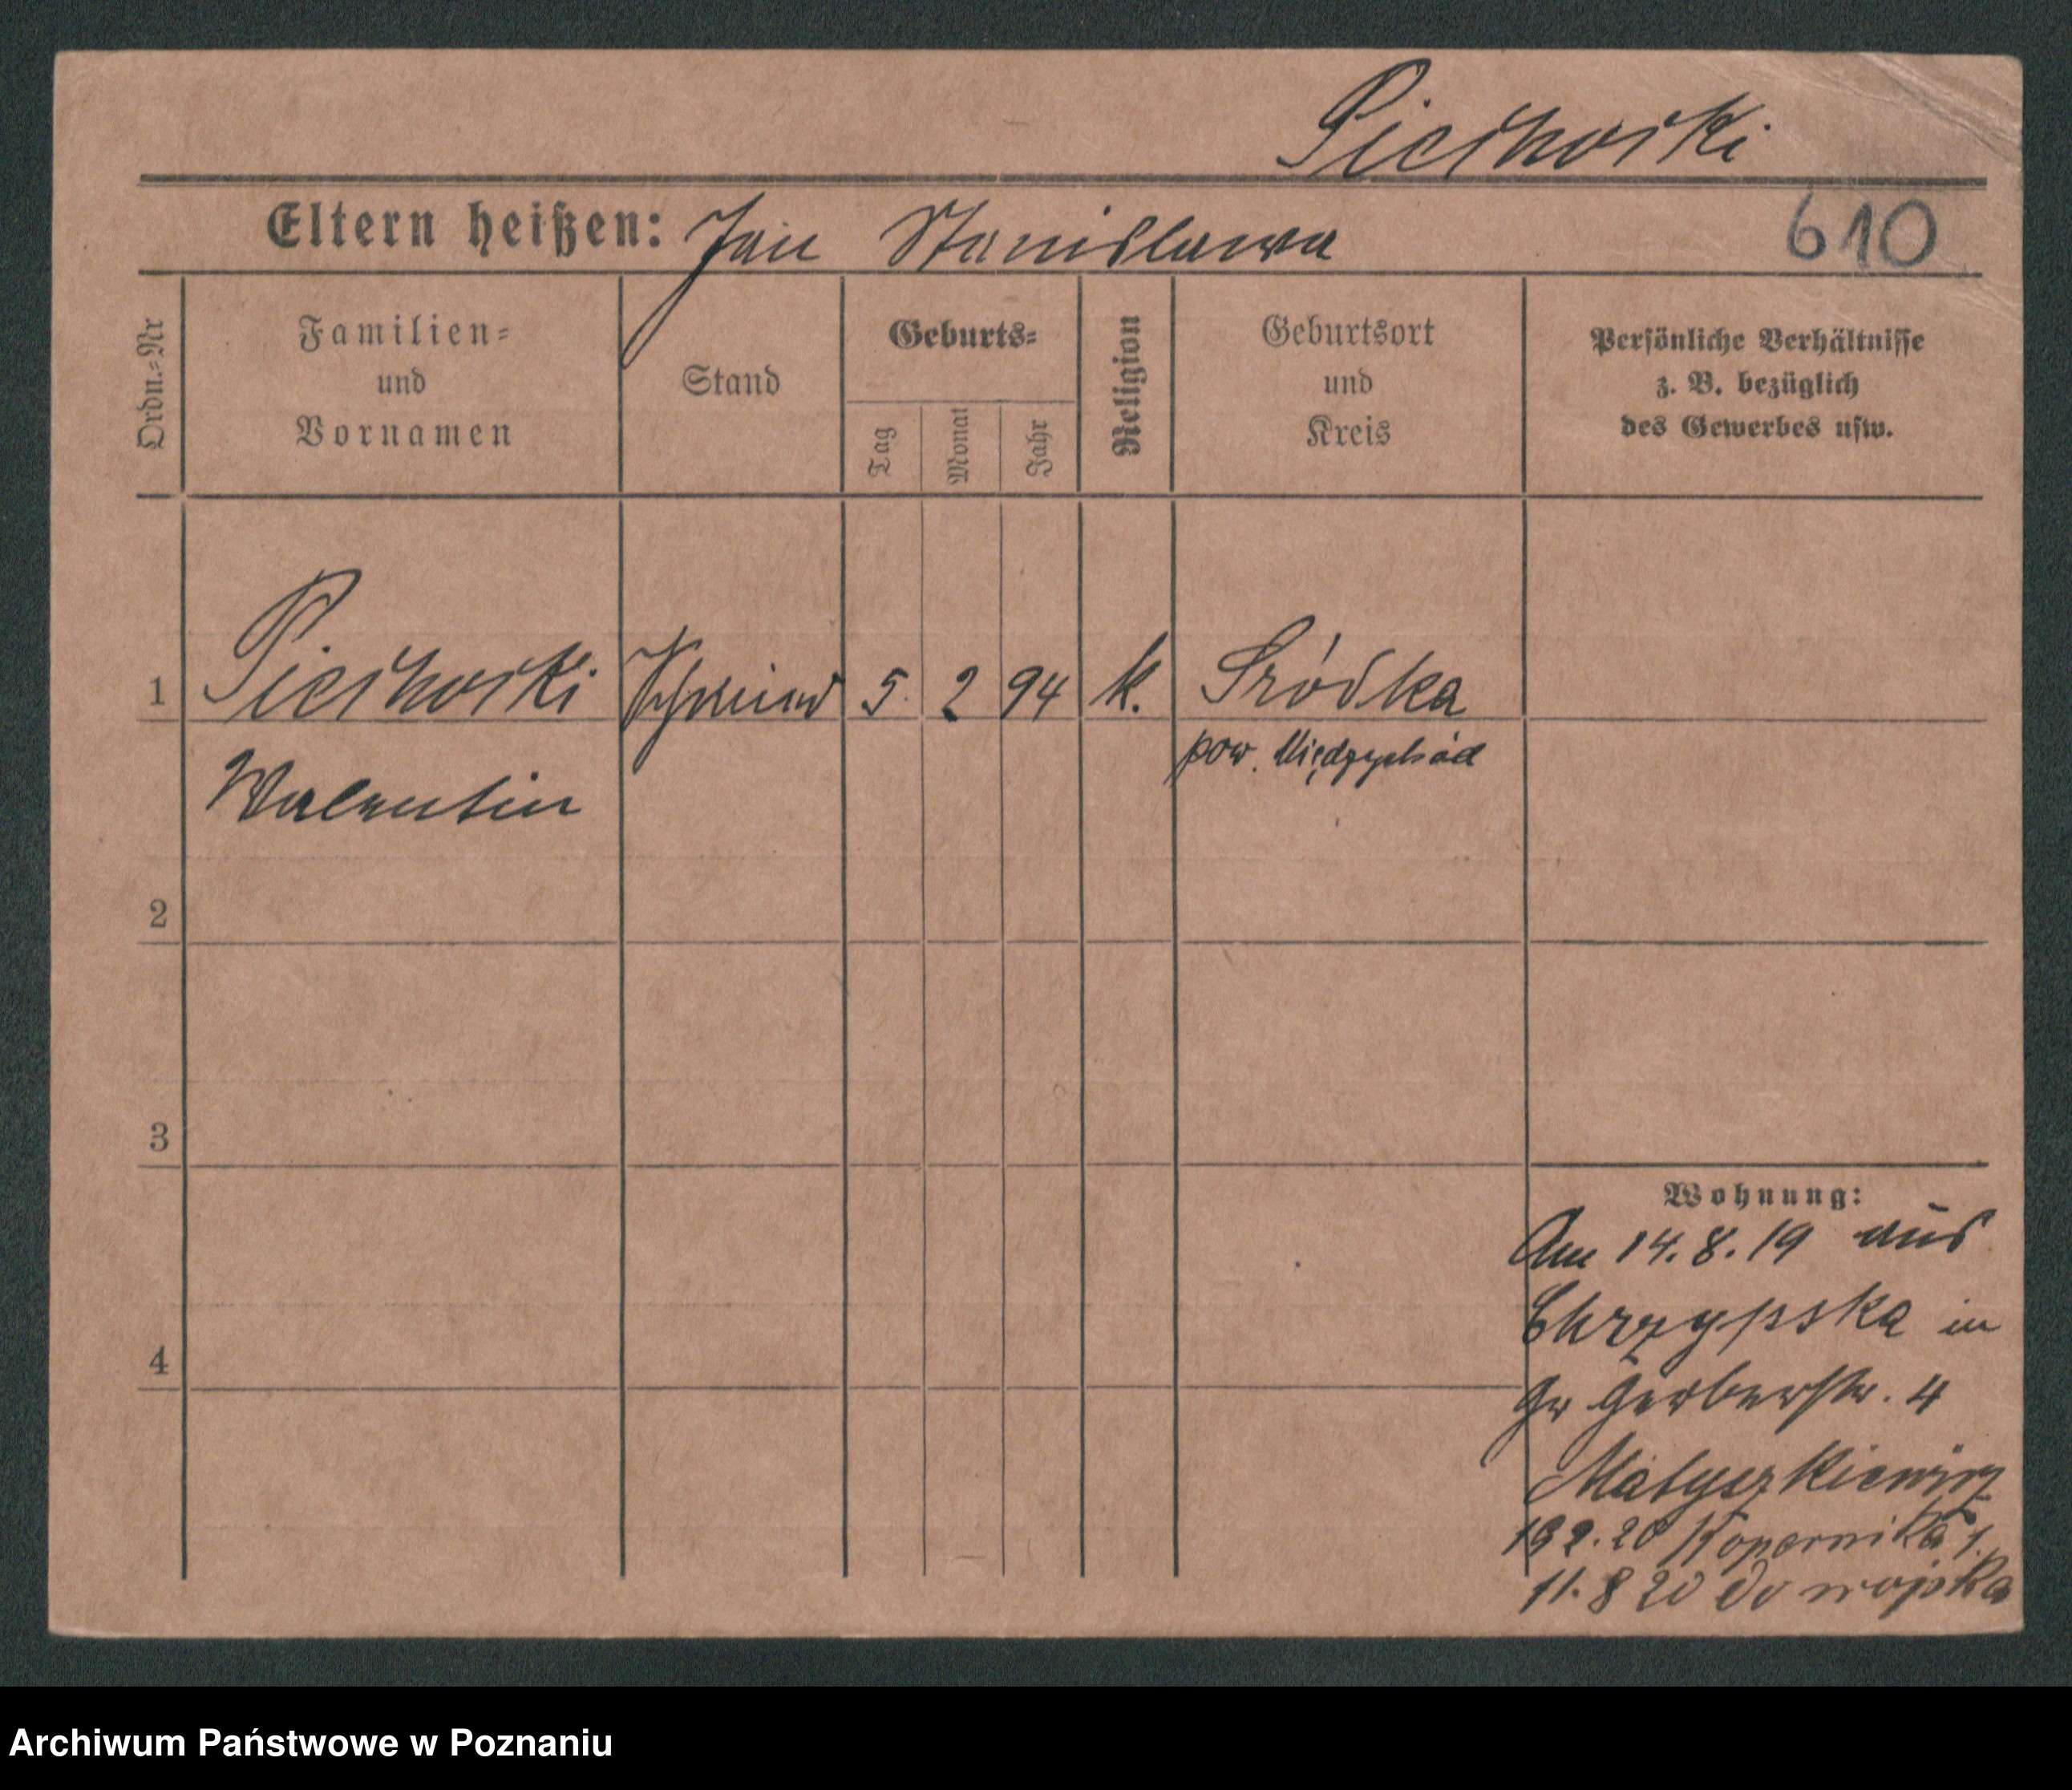 Piechocki
Eltern heißen: Jan Stanislawa
610
Ordn.-Nr
Familien-
und
Vornamen
Stand
Geburts-
Tag
Monat
Jahr
Religion
Geburtsort
und
Kreis
Persönliche Verhältnisse
z. B. bezüglich
des Gewerbes usw.
1 Piechocki 5. 2 94 k. Sródka
pow. Międzychód
Walentin
2
3
4
Wohnung:
Am 14.8.19 aus
Chrzypska in
Gr Gerberstr. 4
Matyszkiewicz
20 Kopernika 1.
11. 8 20 do wojska
Archiwum Państwowe w Poznaniu